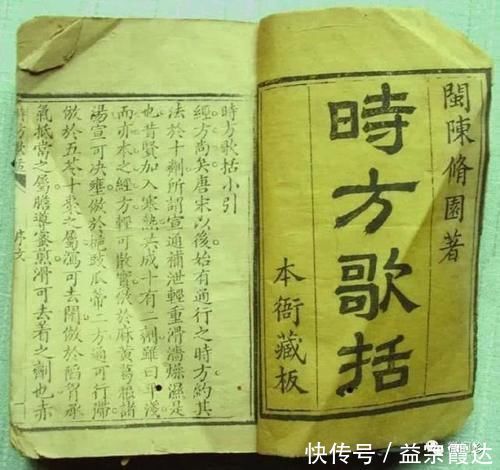 閩陳脩園著
時方歌括
本衙藏板
時方歌括小引
經方尚矣唐宋以後始有通行之時方約其
法於十劑所謂宣通補泄輕重滑濇燥濕是
也昔賢加入寒熱共成十有二劑雖曰平淺
而亦本之經方輕可散實倣於麻黃葛根諸
湯宣可決壅倣於梔豉瓜蒂二方通可行滯
倣於五苓十棗之屬瀉可去閉倣於陷胸承
氣抵當之屬膽導蜜煎滑可去著之劑也赤
時方歌括
序文
快传号／益宗霞达